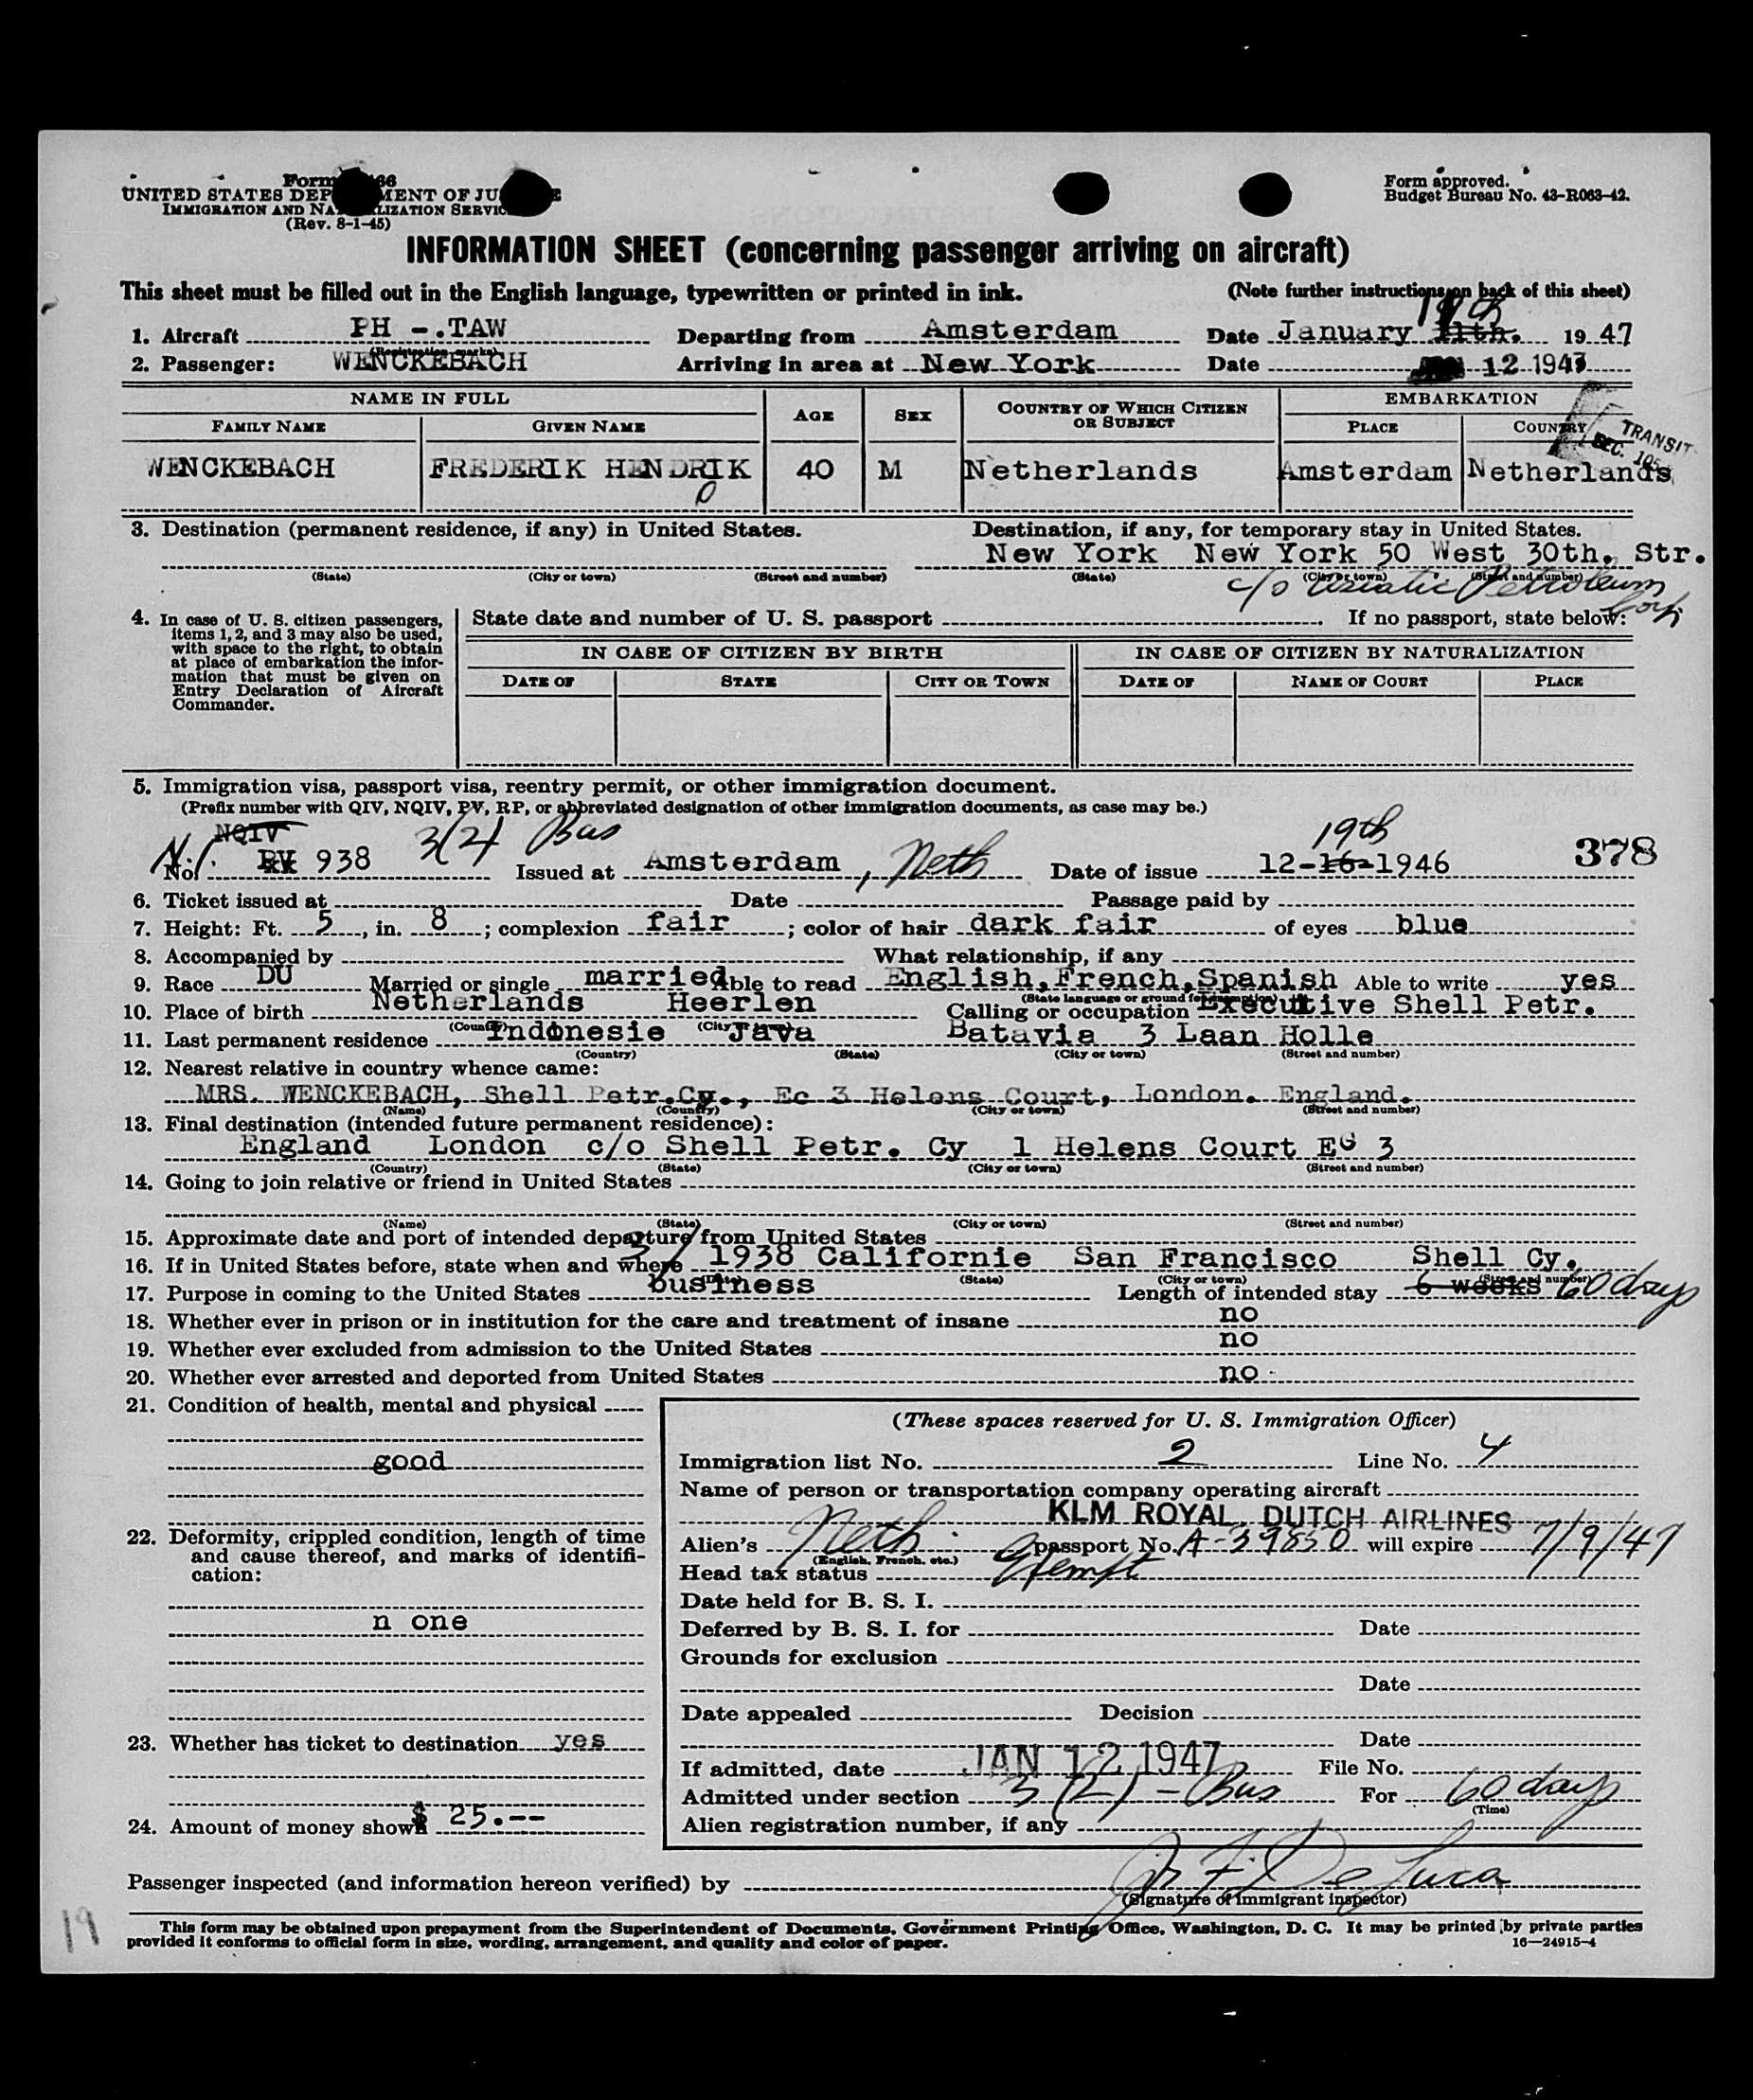 Form 466
UNITED STATES DEPARTMENT OF JUSTICE
IMMIGRATION AND NATURALIZATION SERVICE
(Rev. 8-1-45)
Form approved.
Budget Bureau No. 43-R063-42.
INFORMATION SHEET (concerning passenger arriving on aircraft)
This sheet must be filled out in the English language, typewritten or printed in ink. (Note further instructions on back of this sheet)
1. Aircraft PH -.TAW Departing from Amsterdam Date January 11th. 19 47
(Registration marks)
2. Passenger: WENCKEBACH Arriving in area at New York Date 12 1947
NAME IN FULL AGE SEX COUNTRY OF WHICH CITIZEN OR SUBJECT EMBARKATION
FAMILY NAME GIVEN NAME PLACE COUNTRY
TRANSIT
SEC.
WENCKEBACH FREDERIK HENDRIK 40 M Netherlands Amsterdam Netherlands
3. Destination (permanent residence, if any) in United States. Destination, if any, for temporary stay in United States.
New York New York 50 West 30th, Str.
(State) (City or town) (Street and number) (State) (City or town) (Street and number)
c/o Asiatic Petroleum Corp
4. In case of U. S. citizen passengers, items 1, 2, and 3 may also be used, with space to the right, to obtain at place of embarkation the information that must be given on Entry Declaration of Aircraft Commander.
State date and number of U. S. passport If no passport, state below:
IN CASE OF CITIZEN BY BIRTH IN CASE OF CITIZEN BY NATURALIZATION
DATE OF STATE CITY OR TOWN DATE OF NAME OF COURT PLACE
5. Immigration visa, passport visa, reentry permit, or other immigration document.
(Prefix number with QIV, NQIV, PV, RP, or abbreviated designation of other immigration documents, as case may be.)
NQIV 3(2) Bus 19th
No. PV 938 Issued at Amsterdam, Neth Date of issue 12-16-1946 378
6. Ticket issued at Date Passage paid by
7. Height: Ft. 5, in. 8; complexion fair; color of hair dark fair of eyes blue
8. Accompanied by What relationship, if any
9. Race DU Married or single married Able to read English, French, Spanish Able to write yes
(State language or ground for exemption)
10. Place of birth Netherlands Heerlen Calling or occupation Executive Shell Petr.
(Country) (City or town)
11. Last permanent residence Indonesie Java Batavia 3 Laan Holle
(Country) (State) (City or town) (Street and number)
12. Nearest relative in country whence came:
MRS. WENCKEBACH, Shell Petr.Cy., Ec 3 Helens Court, London. England.
(Name) (Country) (City or town) (Street and number)
13. Final destination (intended future permanent residence):
England London c/o Shell Petr. Cy 1 Helens Court EC 3
(Country) (State) (City or town) (Street and number)
14. Going to join relative or friend in United States
(Name) (State) (City or town) (Street and number)
15. Approximate date and port of intended departure from United States
16. If in United States before, state when and where 1938 Californie San Francisco Shell Cy.
(Date) (State) (City or town) (Street and number)
17. Purpose in coming to the United States business Length of intended stay 6 weeks 60 days
18. Whether ever in prison or in institution for the care and treatment of insane no
19. Whether ever excluded from admission to the United States no
20. Whether ever arrested and deported from United States no
21. Condition of health, mental and physical
good
22. Deformity, crippled condition, length of time and cause thereof, and marks of identification:
n one
23. Whether has ticket to destination yes
24. Amount of money shown $ 25.--
(These spaces reserved for U. S. Immigration Officer)
Immigration list No. 2 Line No. 4
Name of person or transportation company operating aircraft
KLM ROYAL DUTCH AIRLINES
Alien's Neth. passport No. A-39850 will expire 7/9/47
(English, French, etc.)
Head tax status Exempt
Date held for B. S. I.
Deferred by B. S. I. for Date
Grounds for exclusion
Date
Date appealed Decision
Date
If admitted, date JAN 12 1947 File No.
Admitted under section 3(2) - Bus For 60 days
(Time)
Alien registration number, if any
Passenger inspected (and information hereon verified) by De Luca
(Signature of immigrant inspector)
This form may be obtained upon prepayment from the Superintendent of Documents, Government Printing Office, Washington, D. C. It may be printed by private parties
provided it conforms to official form in size, wording, arrangement, and quality and color of paper.
16—24915-4
19